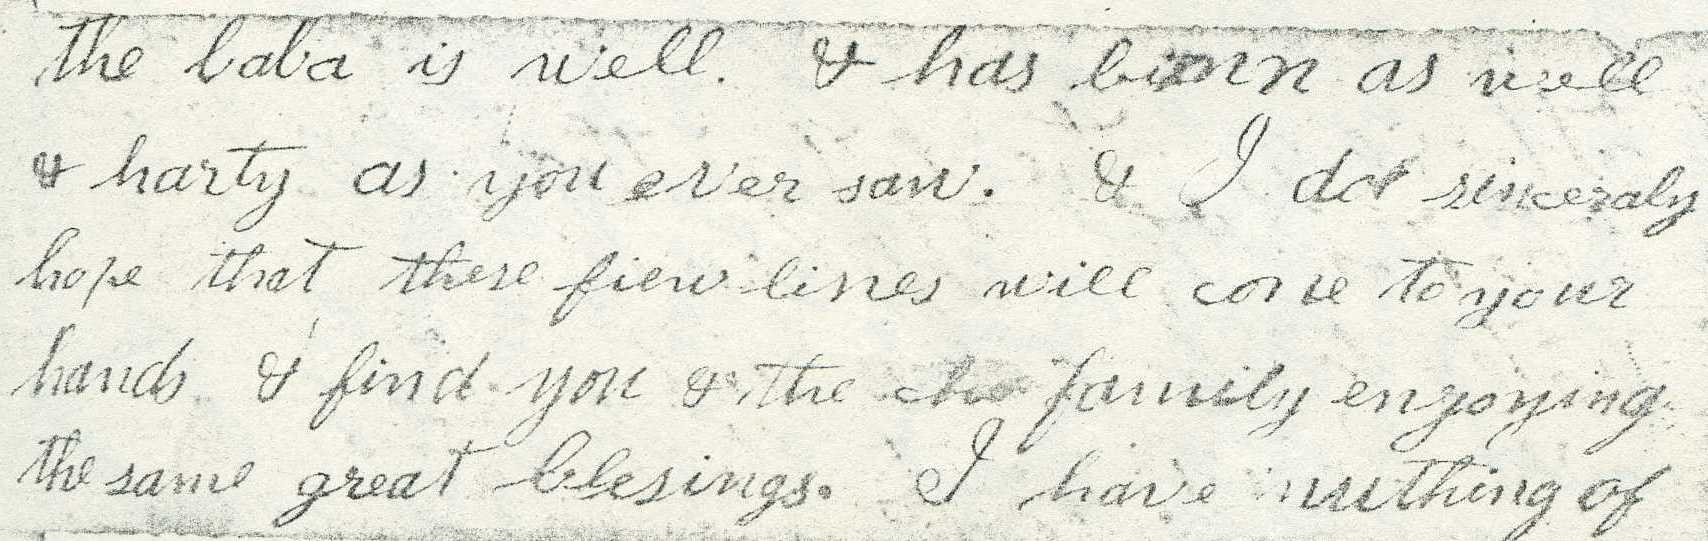 the baba is well. & has binn as well
& harty as you ever saw. & I do sinceraly
hope that these fiew lines will come to your
hands & find you & the family enyoying
the same great blesings. I have nuthing of